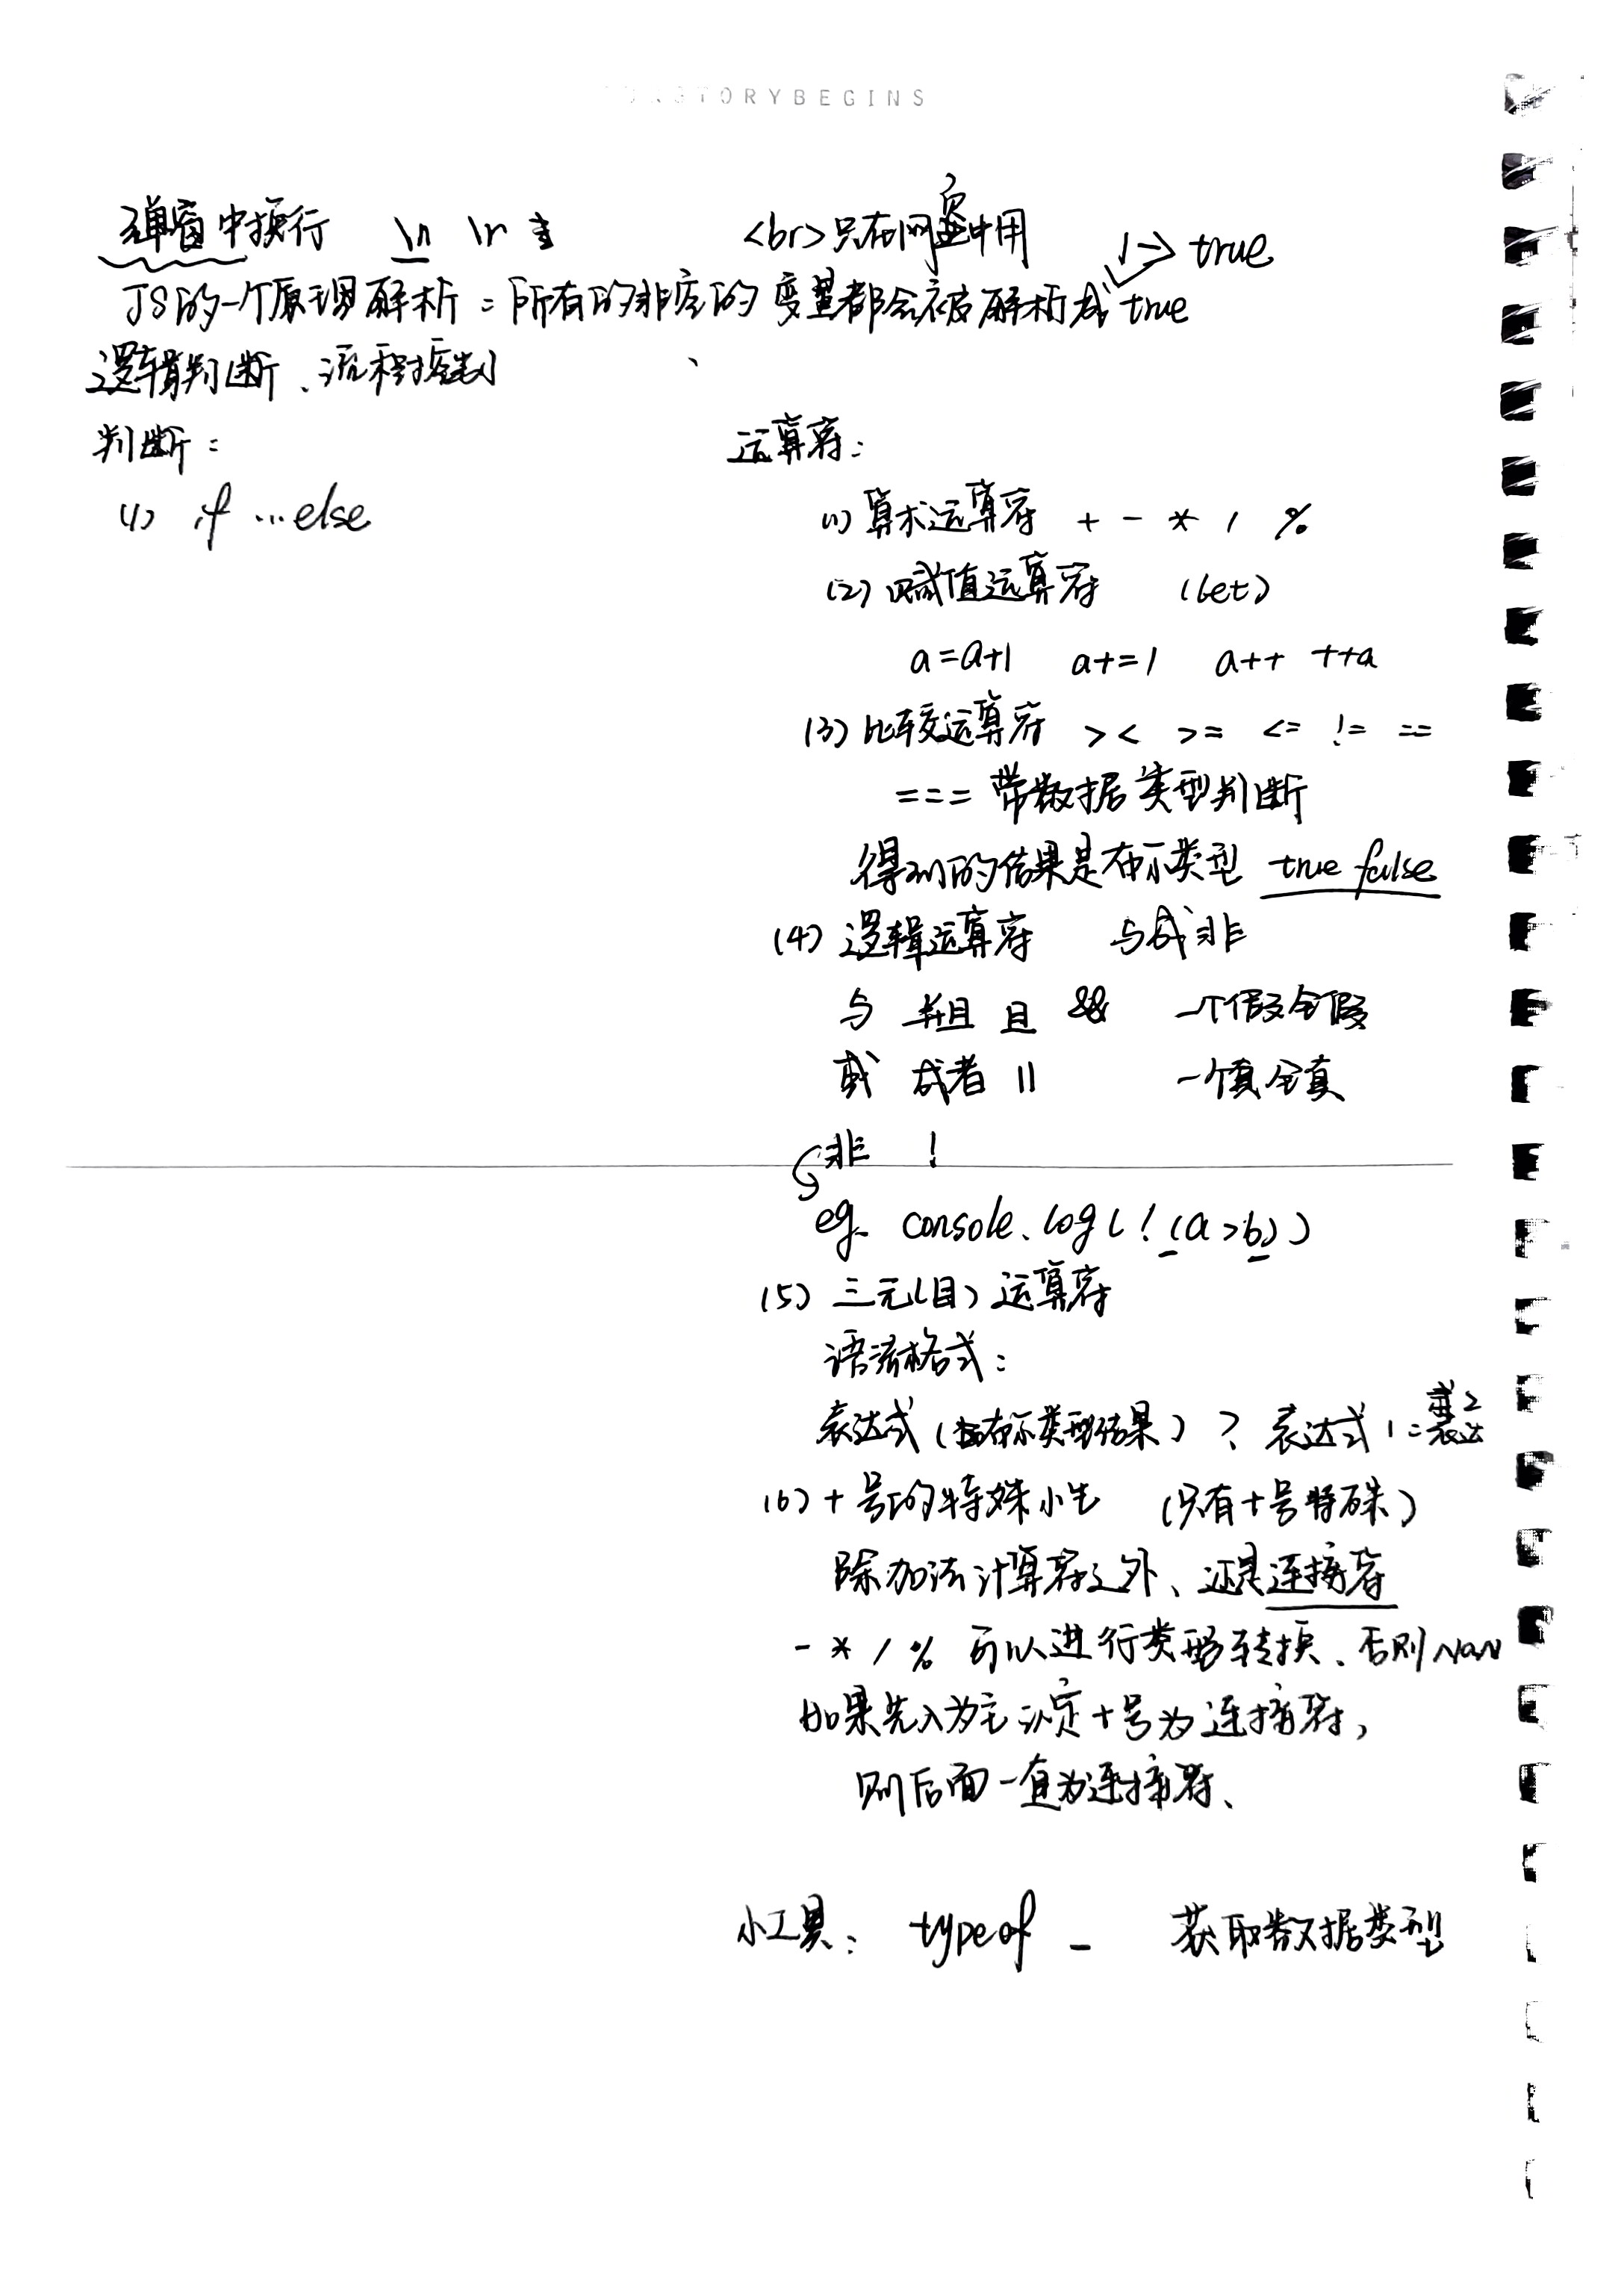 TORYBEGINS
弹窗中换行 \n \r <br>只在网页中用
1 → true
JS的一个原理解析：所有的非空的变量都会被解析成 true
逻辑判断、流程控制
判断：
(1) if ...else
运算符：
(1) 算术运算符 + - * / %
(2) 赋值运算符 (let)
a=a+1 a+=1 a++ ++a
(3) 比较运算符 > < >= <= != ==
=== 带数据类型判断
得到的结果是布尔类型 true false
(4) 逻辑运算符 与或非
与 并且 且 && 一个假全假
或 或者 || 一个真全真
非 !
eg. console.log(!(a>b))
(5) 三元(目)运算符
语法格式：
表达式(布尔类型结果) ? 表达式1:表达式2
(6) +号的特殊性 (只有+号特殊)
除加法计算符之外、还是连接符
- * / % 可以进行类型转换、否则NaN
如果先入为主认定+号为连接符,
则后面一直为连接符、
小工具： typeof _ 获取数据类型